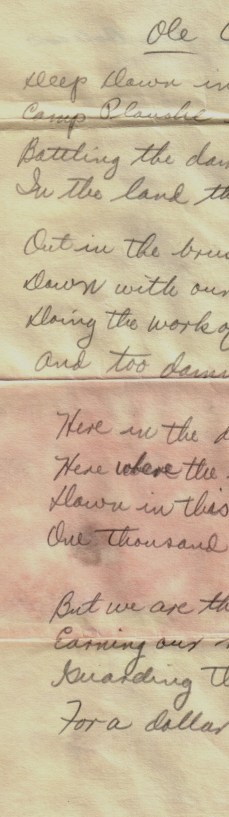 Ole
Deep Down in
Camp Planche
Battling the dam
In the land th
Out in the brus
Down with our
Doing the work o
And too damn
Here in the d
Here where the
Down in this
One thousand
But we are th
Earning our
Guarding th
For a dollar